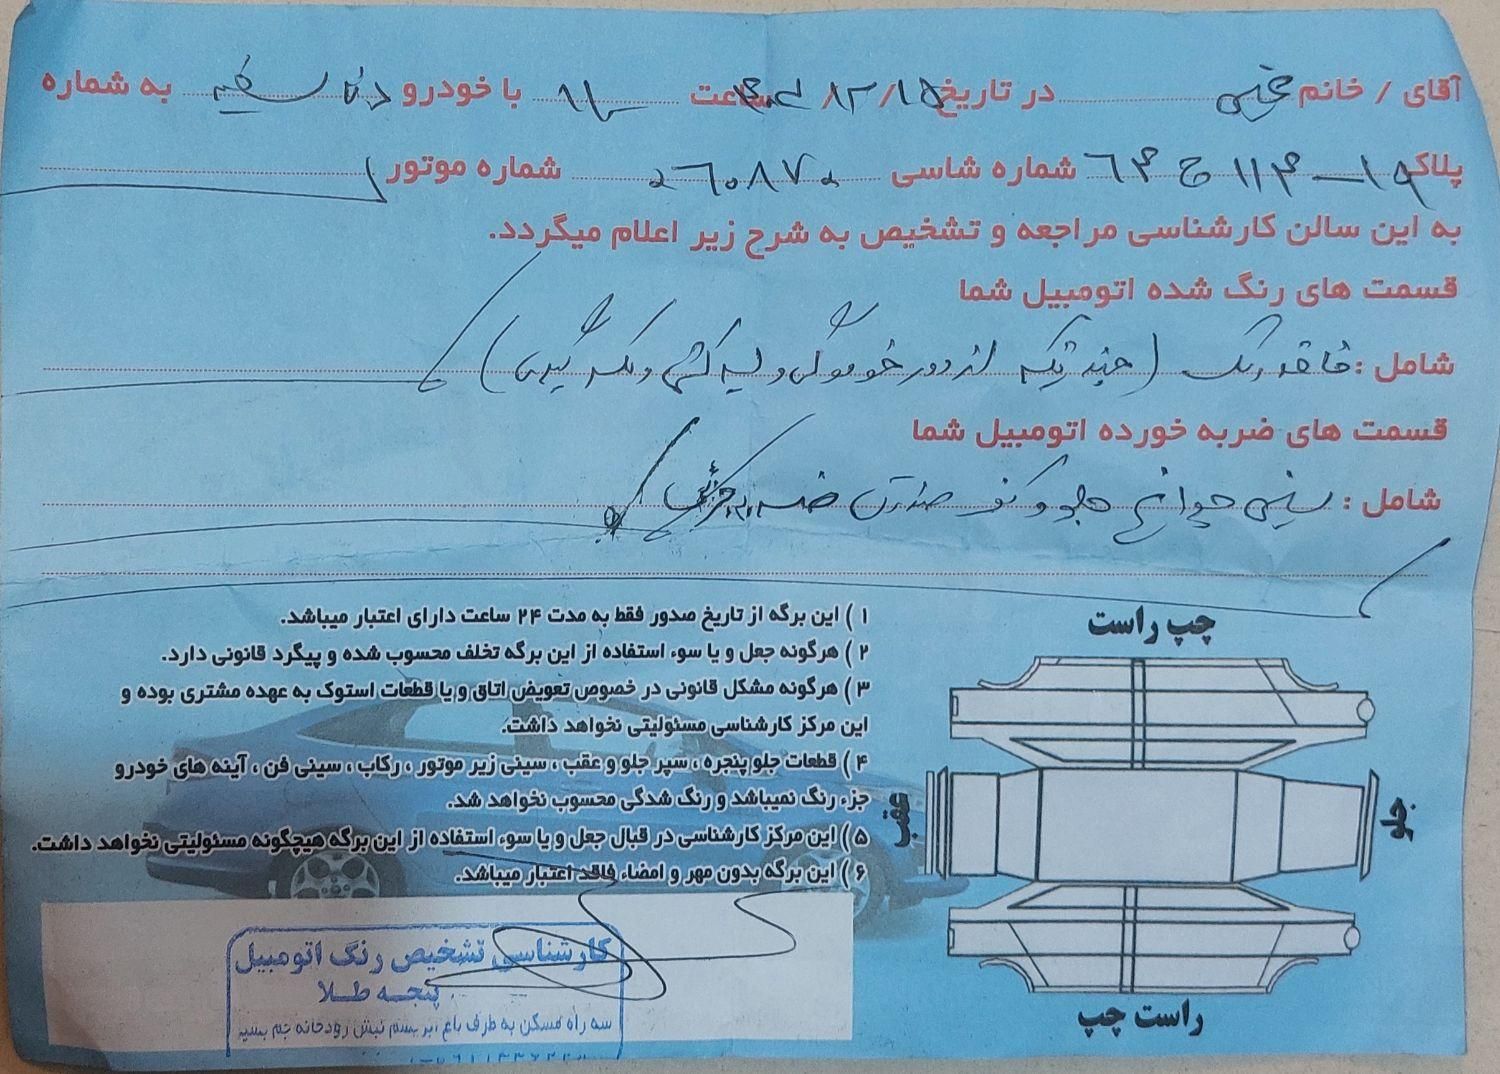 آقای / خانم محبی در تاریخ ۱۴۰۲/۱۲/۱۵ ساعت ۱۱ با خودرو دنا سفید به شماره
پلاک ۱۹ــ۱۱۳ ج ۶۳ شماره شاسی ۲۶۰۸۷۰ شماره موتور
به این سالن کارشناسی مراجعه و تشخیص به شرح زیر اعلام میگردد.
قسمت های رنگ شده اتومبیل شما
شامل : فاقد رنگ ( چند تیکه از دور خوموشگی و لیسه کشی و لکه گیری )
قسمت های ضربه خورده اتومبیل شما
شامل : سینی جلو و کف صندوق ضربه جزئی
۱ ) این برگه از تاریخ صدور فقط به مدت ۲۴ ساعت دارای اعتبار میباشد.
۲ ) هرگونه جعل و یا سوء استفاده از این برگه تخلف محسوب شده و پیگرد قانونی دارد.
۳ ) هرگونه مشکل قانونی در خصوص تعویض اتاق و یا قطعات استوک به عهده مشتری بوده و
این مرکز کارشناسی مسئولیتی نخواهد داشت.
۴ ) قطعات جلو پنجره ، سپر جلو و عقب ، سینی زیر موتور ، رکاب ، سینی فن ، آینه های خودرو
جزء رنگ نمیباشد و رنگ شدگی محسوب نخواهد شد.
۵ ) این مرکز کارشناسی در قبال جعل و یا سوء استفاده از این برگه هیچگونه مسئولیتی نخواهد داشت.
۶ ) این برگه بدون مهر و امضاء فاقد اعتبار میباشد.
چپ راست
عقب
جلو
راست چپ
کارشناسی تشخیص رنگ اتومبیل
پنجه طلا
سه راه مسکن به طرف باغ ابریشم نبش رودخانه جم بسید